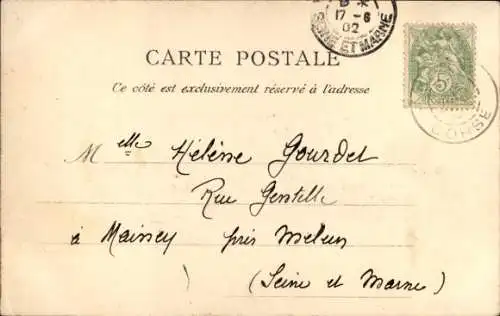 17-6
02
SEINE ET MARNE
CARTE POSTALE
Ce côté est exclusivement réservé à l'adresse
5
CORSE
Melle Hélène Gourdet
Rue Gentille
à Maincy près Melun
(Seine et Marne)